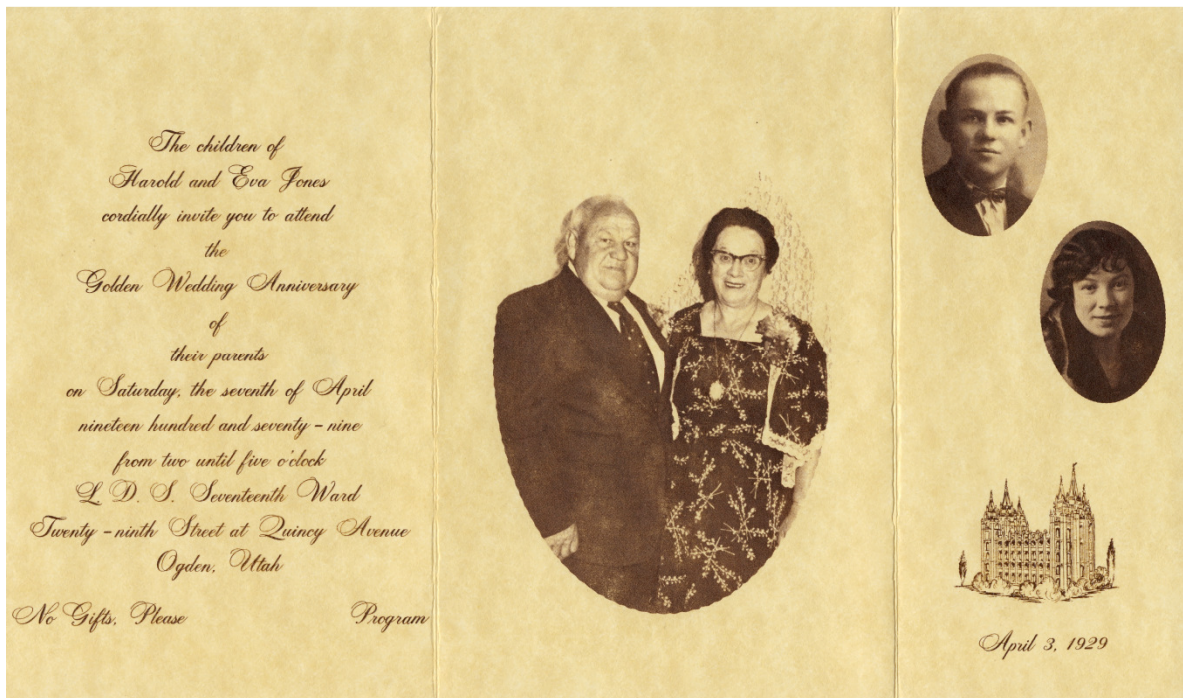 The children of
Harold and Eva Jones
cordially invite you to attend
the
Golden Wedding Anniversary
of
their parents
on Saturday, the seventh of April
nineteen hundred and seventy-nine
from two until five o'clock
L. D. S. Seventeenth Ward
Twenty-ninth Street at Quincy Avenue
Ogden, Utah
No Gifts, Please Program
April 3, 1929